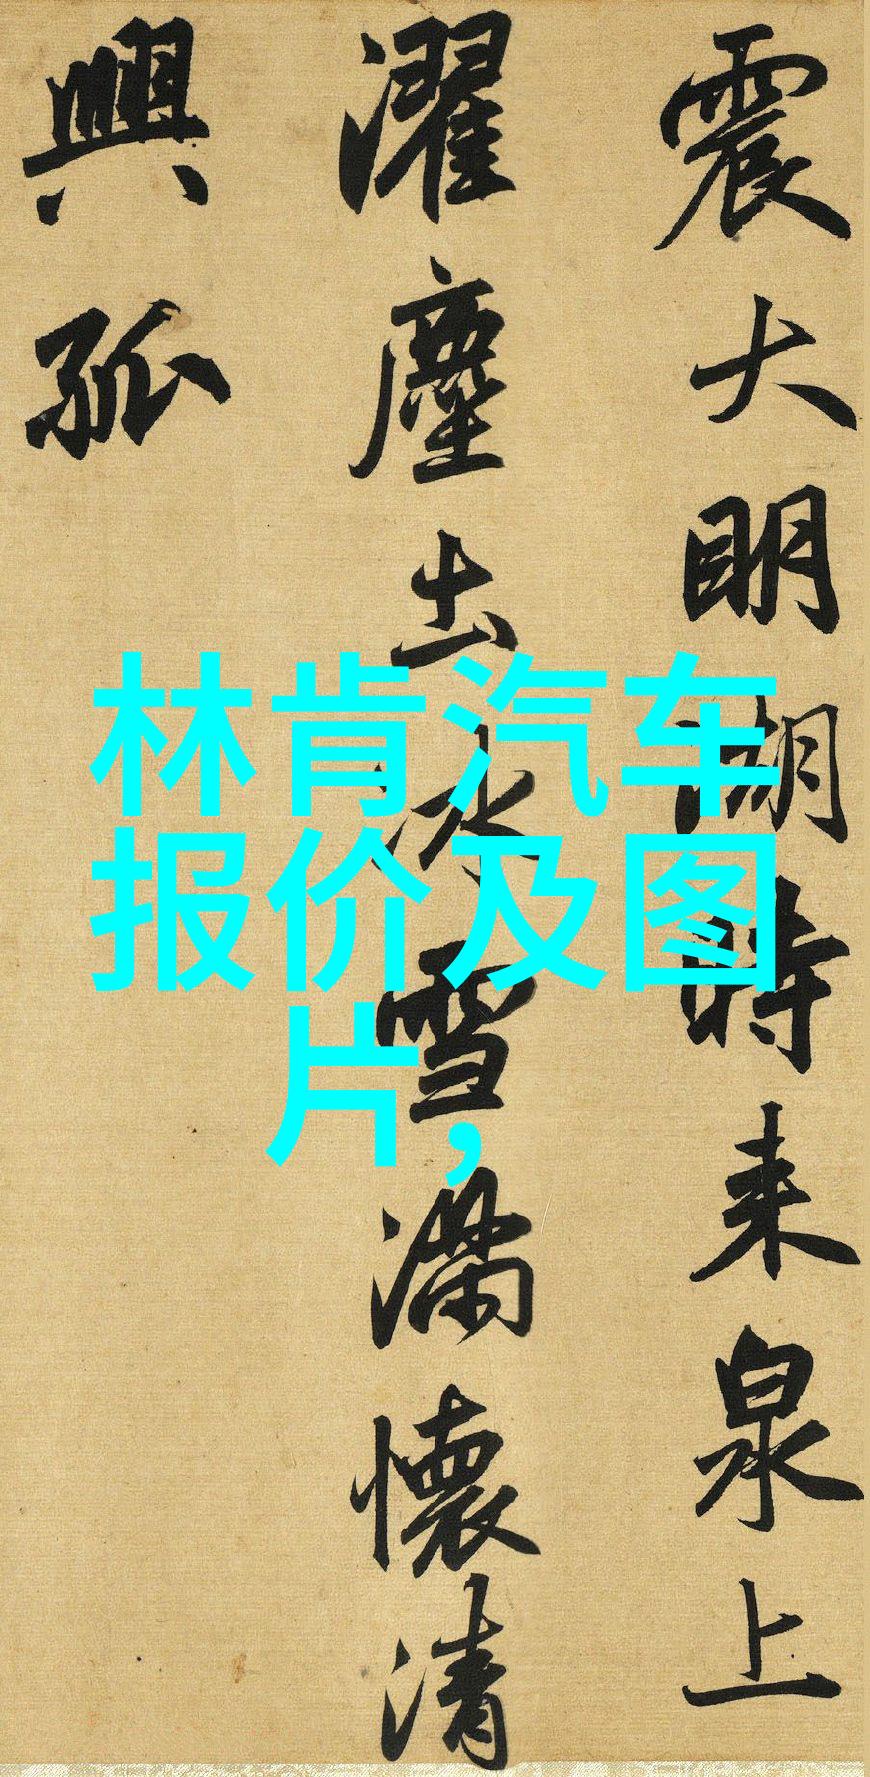 震大明湖時来泉上
濯塵土冰雪滿懷清
興孤
林肯汽车
报价及图
片,